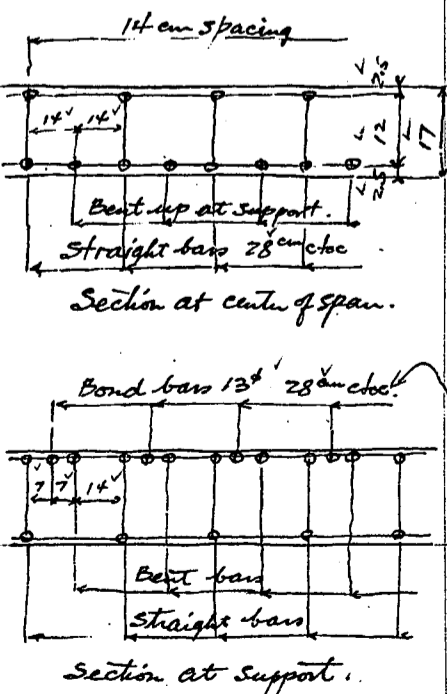 14 cm spacing
2.5
14 14
12
17
2.5
Bent up at support.
Straight bars 28 cm ctoc
Section at center of span.
Bond bars 13ϕ 28 cm ctoc.
7 7 14
Bent bars
Straight bars
Section at support.